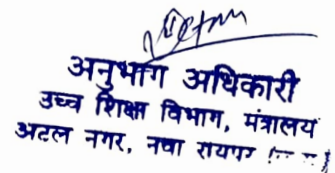 अनुभाग अधिकारी
उच्च शिक्षा विभाग, मंत्रालय
अटल नगर, नवा रायपुर